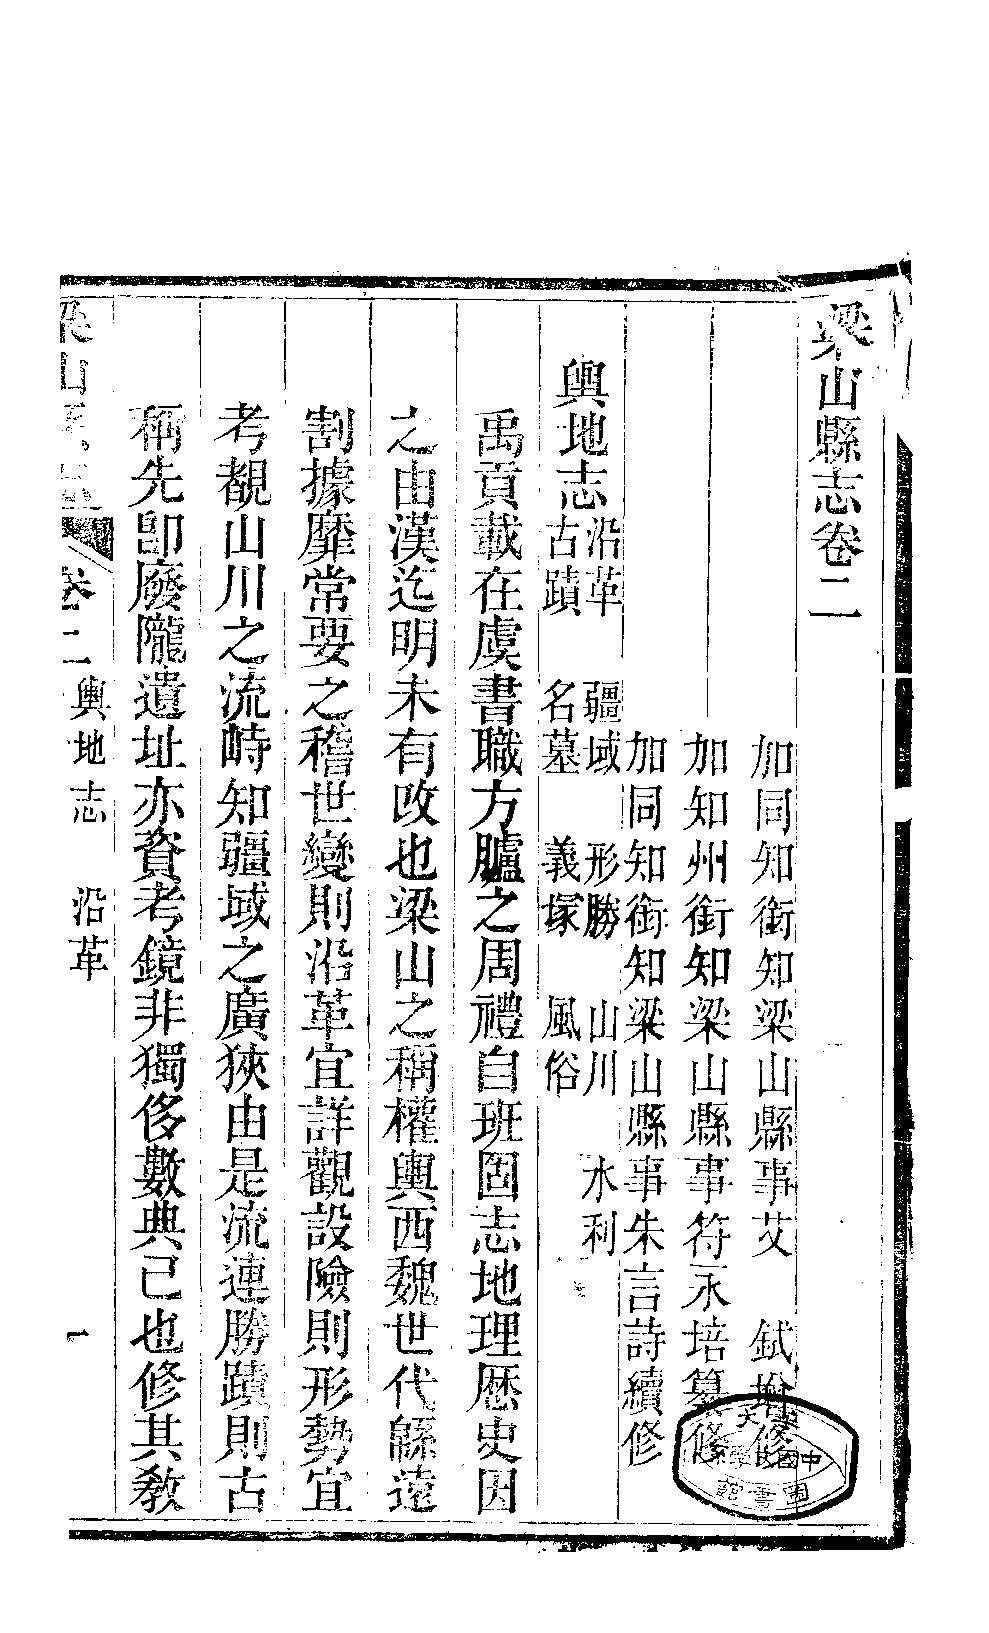 梁山縣志卷二
加同知銜知梁山縣事艾 鉽增修
加知州銜知梁山縣事符永培纂修
加同知銜知梁山縣事朱言詩續修
輿地志 沿革 疆域 形勝 山川 水利
古蹟 名墓 義塚 風俗
禹貢載在虞書職方臚之周禮自班固志地理歷史因
之由漢迄明未有改也梁山之稱權輿西魏世代緜遠
割據靡常要之稽世變則沿革宜詳觀設險則形勢宜
考覩山川之流峙知疆域之廣狹由是流連勝蹟則古
稱先卽廢隴遺址亦資考鏡非獨侈數典已也修其敎
梁山縣志 卷二 輿地志 沿革 一
中國 圖書館